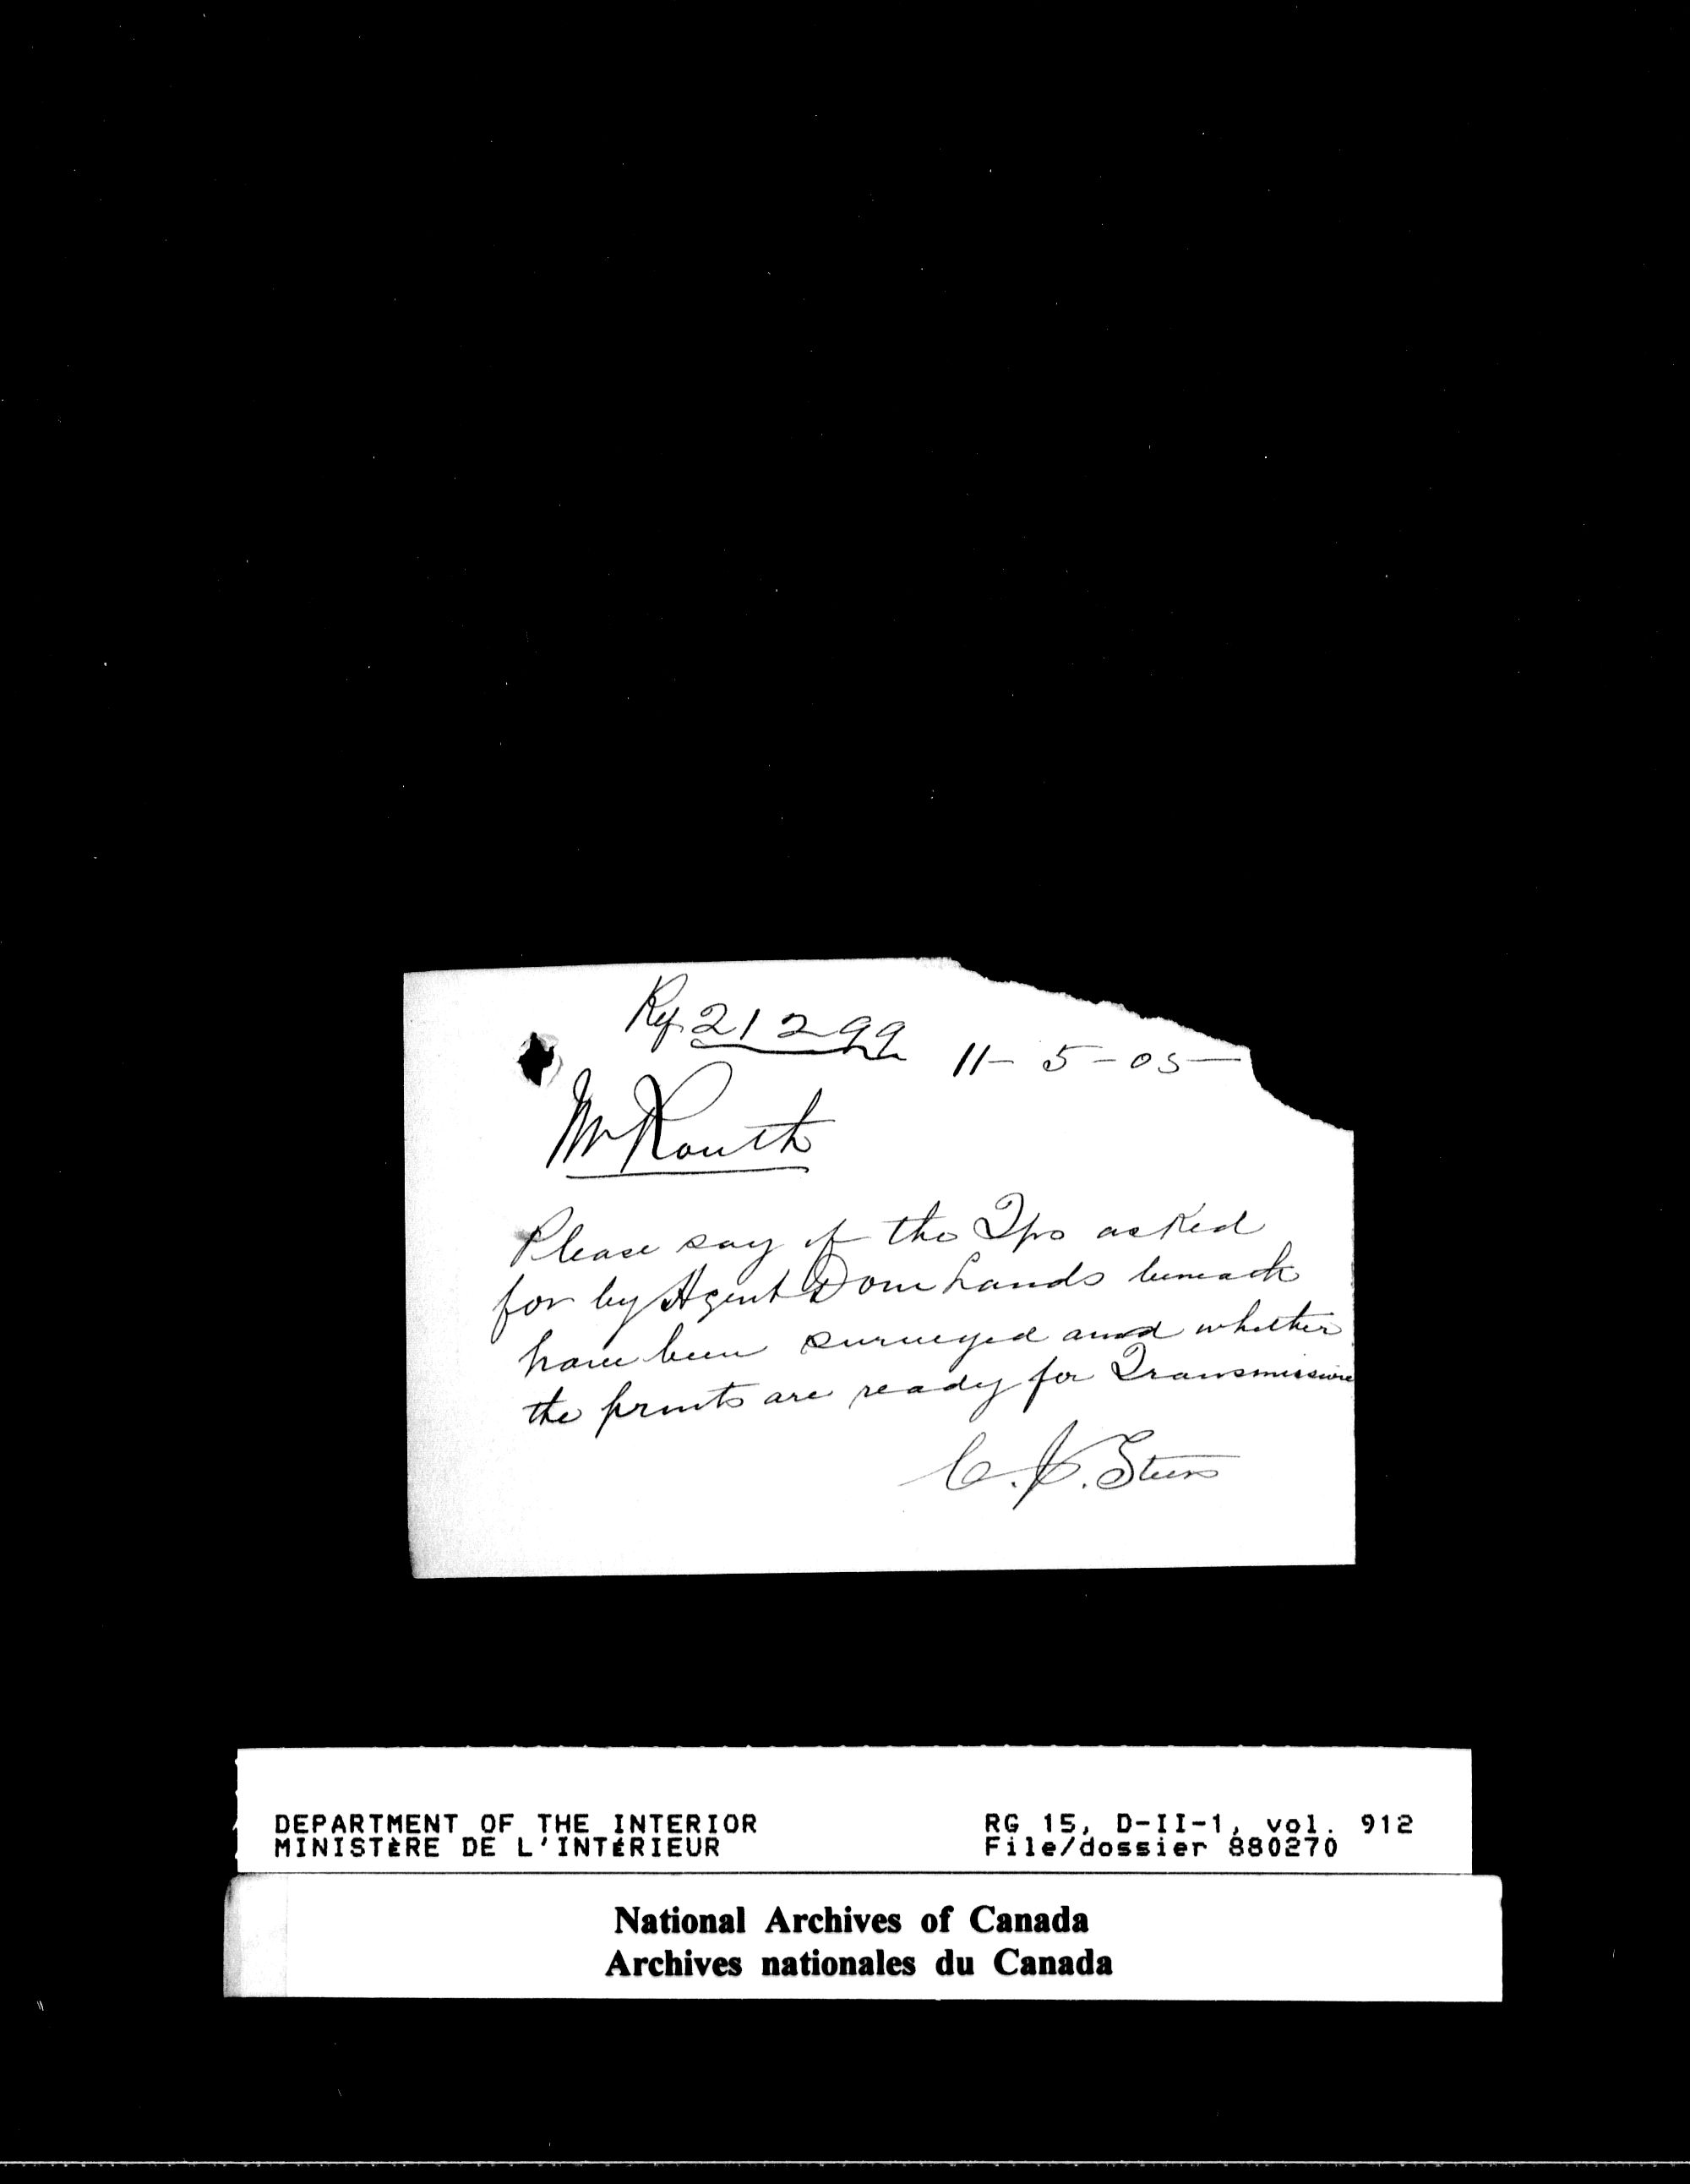 Ref. 21299
11-5-05-
Mr Routh
Please say if the Tps asked
for by Agent Dom Lands beneath
have been surveyed and whether
the prints are ready for Transmission
C. J. Steers
DEPARTMENT OF THE INTERIOR
MINISTÈRE DE L'INTÉRIEUR
RG 15, D-II-1, vol. 912
File/dossier 880270
National Archives of Canada
Archives nationales du Canada